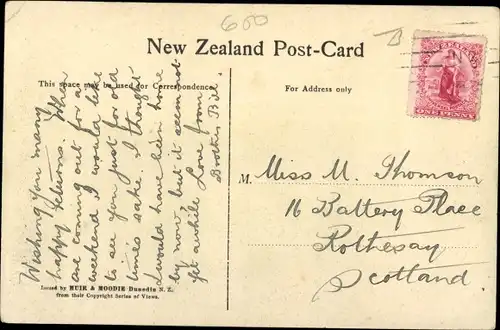 600
B
New Zealand Post-Card
This space may be used for Correspondence
For Address only
NEW ZEALAND
ONE PENNY
Wishing you many
happy returns. When
are coming out for a
weekend I would like
to see you just for old
times sake. I thought
I would have been home
by now, but it seems not
yet awhile Love from
Brother Bill.
M. Miss M. Thomson
16 Battery Place
Rothesay
Scotland
Issued by MUIR & MOODIE Dunedin N. Z.
from their Copyright Series of Views.